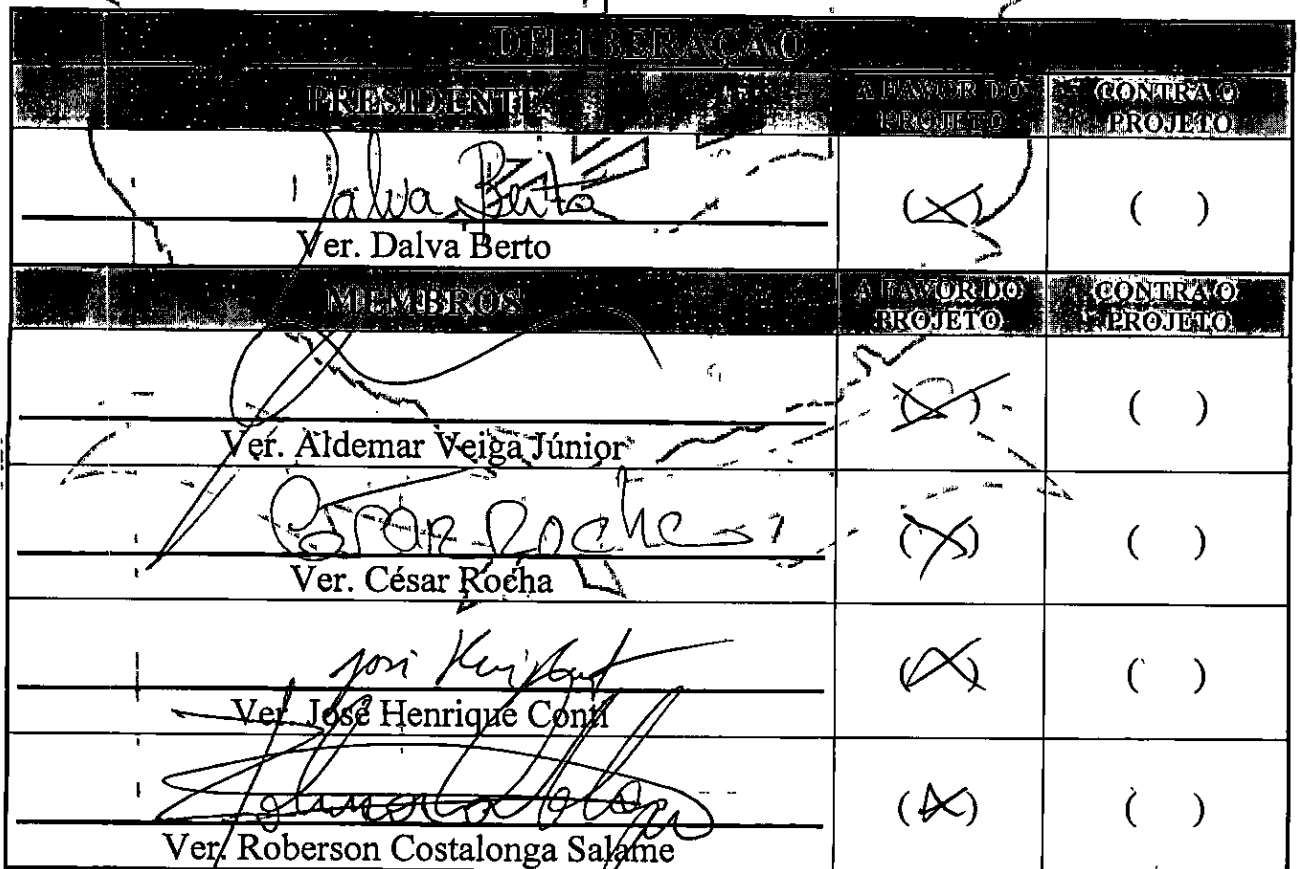 DELIBERAÇÃO
PRESIDENTE
A FAVOR DO PROJETO
CONTRA O PROJETO
Dalva Berto
(X)
( )
Ver. Dalva Berto
MEMBROS
A FAVOR DO PROJETO
CONTRA O PROJETO
(X)
( )
Ver. Aldemar Veiga Júnior
César Rocha
(X)
( )
Ver. César Rocha
José
(X)
( )
Ver. José Henrique Conti
(X)
( )
Ver. Roberson Costalonga Salame